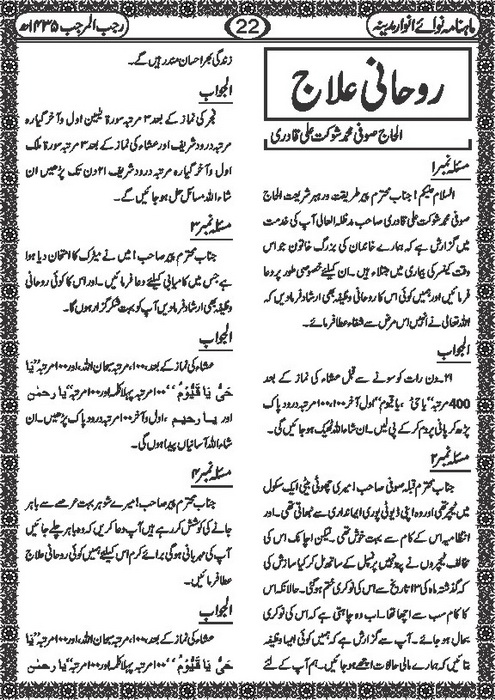 ماہنامہ نوائے انوار مدینہ
22
رجب المرجب ۱۴۳۵ھ
روحانی علاج
الحاج صوفی محمد شوکت علی قادری
مسئلہ نمبر۱
السلام علیکم! جناب محترم پیر طریقت ورہبر شریعت الحاج
صوفی محمد شوکت علی قادری صاحب مدظلہ العالی آپ کی خدمت
میں گزارش ہے کہ ہمارے خاندان کی بزرگ خاتون جو اس
وقت کینسر کی بیماری میں مبتلاء ہیں۔ ان کیلئے خصوصی طور پر دعا
فرمائیں اور ہمیں کوئی اس کا روحانی وظیفہ بھی ارشاد فرمادیں کہ
اللہ تعالی نے انہیں اس مرض سے شفاء عطا فرمائے۔
الجواب
۲۱۔دن رات کو سونے سے قبل عشاء کی نماز کے بعد
400 مرتبہ "یا حَیُّ، یا قیوم" اول آخر ۱۰۰، ۱۰۰ مرتبہ درود پاک
پڑھ کر پانی پر دم کر کے پی لیں۔ ان شاء اللہ ٹھیک ہو جائیں گی۔
مسئلہ نمبر۲
جناب محترم قبلہ صوفی صاحب! میری چھوٹی بیٹی ایک سکول
میں ٹیچر تھی اور وہ اپنی ڈیوٹی پوری ایمانداری سے نبھاتی تھی۔ اور
انتظامیہ اس کے کام سے بہت خوش تھی۔ لیکن اچانک اس کی
مخالف ٹیچروں نے پرنسپل کے ساتھ مل کر ایسا سازش کی
کہ گذشتہ ماہ کی ۱۳ تاریخ سے اس کی نوکری ختم ہوگئی۔ حالانکہ اس
کا کام سب سے اچھا تھا۔ اب وہ چاہتی ہے کہ اس کی نوکری
بحال ہو جائے۔ آپ سے گزارش ہے کہ ہمیں کوئی ایسا وظیفہ
بتائیں کہ ہمارے مالی حالات اچھے ہو جائیں۔ ہم آپ کے لئے
زندگی بھر احسان مند رہیں گے۔
الجواب
فجر کی نماز کے بعد ۳ مرتبہ سورۃ یٰسین اول و آخر گیارہ
مرتبہ درود شریف اور عشاء کی نماز کے بعد ۳ مرتبہ سورۃ ملک
اول و آخر گیارہ مرتبہ درود شریف ۲۱ دن تک پڑھیں ان
شاء اللہ مسائل حل ہو جائیں گے۔
مسئلہ نمبر۳
جناب محترم پیر صاحب! میں نے میٹرک کا امتحان دیا ہوا
ہے جس میں کامیابی کیلئے دعا فرمائیں۔ اور اس کا کوئی روحانی
وظیفہ بھی ارشاد فرمادیں آپ کو بہت شکر گزار ہوں گا۔
الجواب
عشاء کی نماز کے بعد ۱۰۰ مرتبہ سبحان اللہ، اور ۱۰۰ مرتبہ "یَا
حَیُّ یَا قَیُّوْمُ"، ۱۰۰ مرتبہ پہلا کلمہ اور ۱۰۰ مرتبہ "یا رحمٰن
اور یا رحیم، اول و آخر ۱۰۰ مرتبہ درود پاک پڑھیں۔ ان
شاء اللہ آسانیاں پیدا ہوں گی۔
مسئلہ نمبر۴
جناب محترم پیر صاحب! میرے شوہر بہت عرصے سے باہر
جانے کی کوشش کر رہے ہیں آپ دعا کریں کہ وہ باہر چلے جائیں
آپ کی مہربانی ہوگی برائے کرم اس کیلئے ہمیں کوئی روحانی علاج
عطا فرمائیں۔
الجواب
عشاء کی نماز کے بعد ۱۰۰ مرتبہ سبحان اللہ، اور ۱۰۰ مرتبہ "یَا
حَیُّ یَا قَیُّوْمُ"، ۱۰۰ مرتبہ پہلا کلمہ اور ۱۰۰ مرتبہ "یا رحمٰن